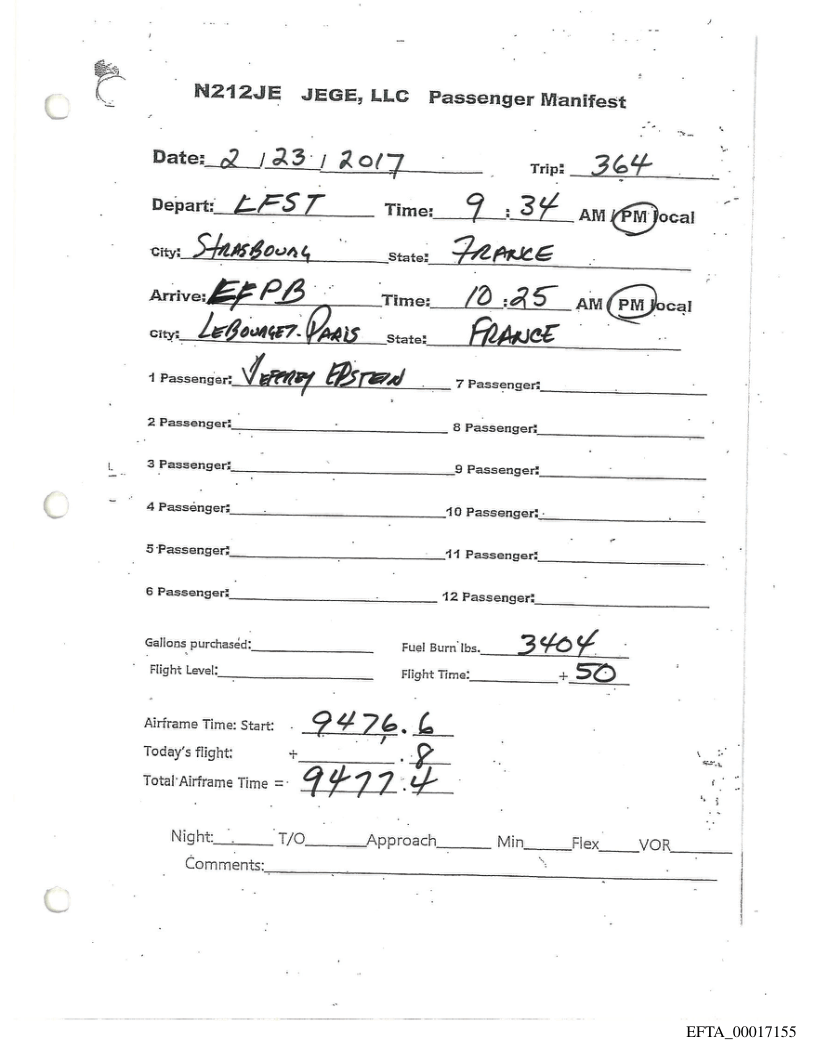 N212JE JEGE, LLC Passenger Manifest
Date: 2 / 23 / 2017 Trip: 364
Depart: LFST Time: 9 : 34 AM / PM local
City: STRASBOURG State: FRANCE
Arrive: EFPB Time: 10 : 25 AM / PM local
City: LEBOURGET-PARIS State: FRANCE
1 Passenger: JEFFREY EPSTEIN 7 Passenger:
2 Passenger: 8 Passenger:
3 Passenger: 9 Passenger:
4 Passenger: 10 Passenger:
5 Passenger: 11 Passenger:
6 Passenger: 12 Passenger:
Gallons purchased: Fuel Burn lbs. 3404
Flight Level: Flight Time: + 50
Airframe Time: Start: 9476.6
Today's flight: + .8
Total Airframe Time = 9477.4
Night: T/O Approach Min Flex VOR
Comments:
EFTA_00017155